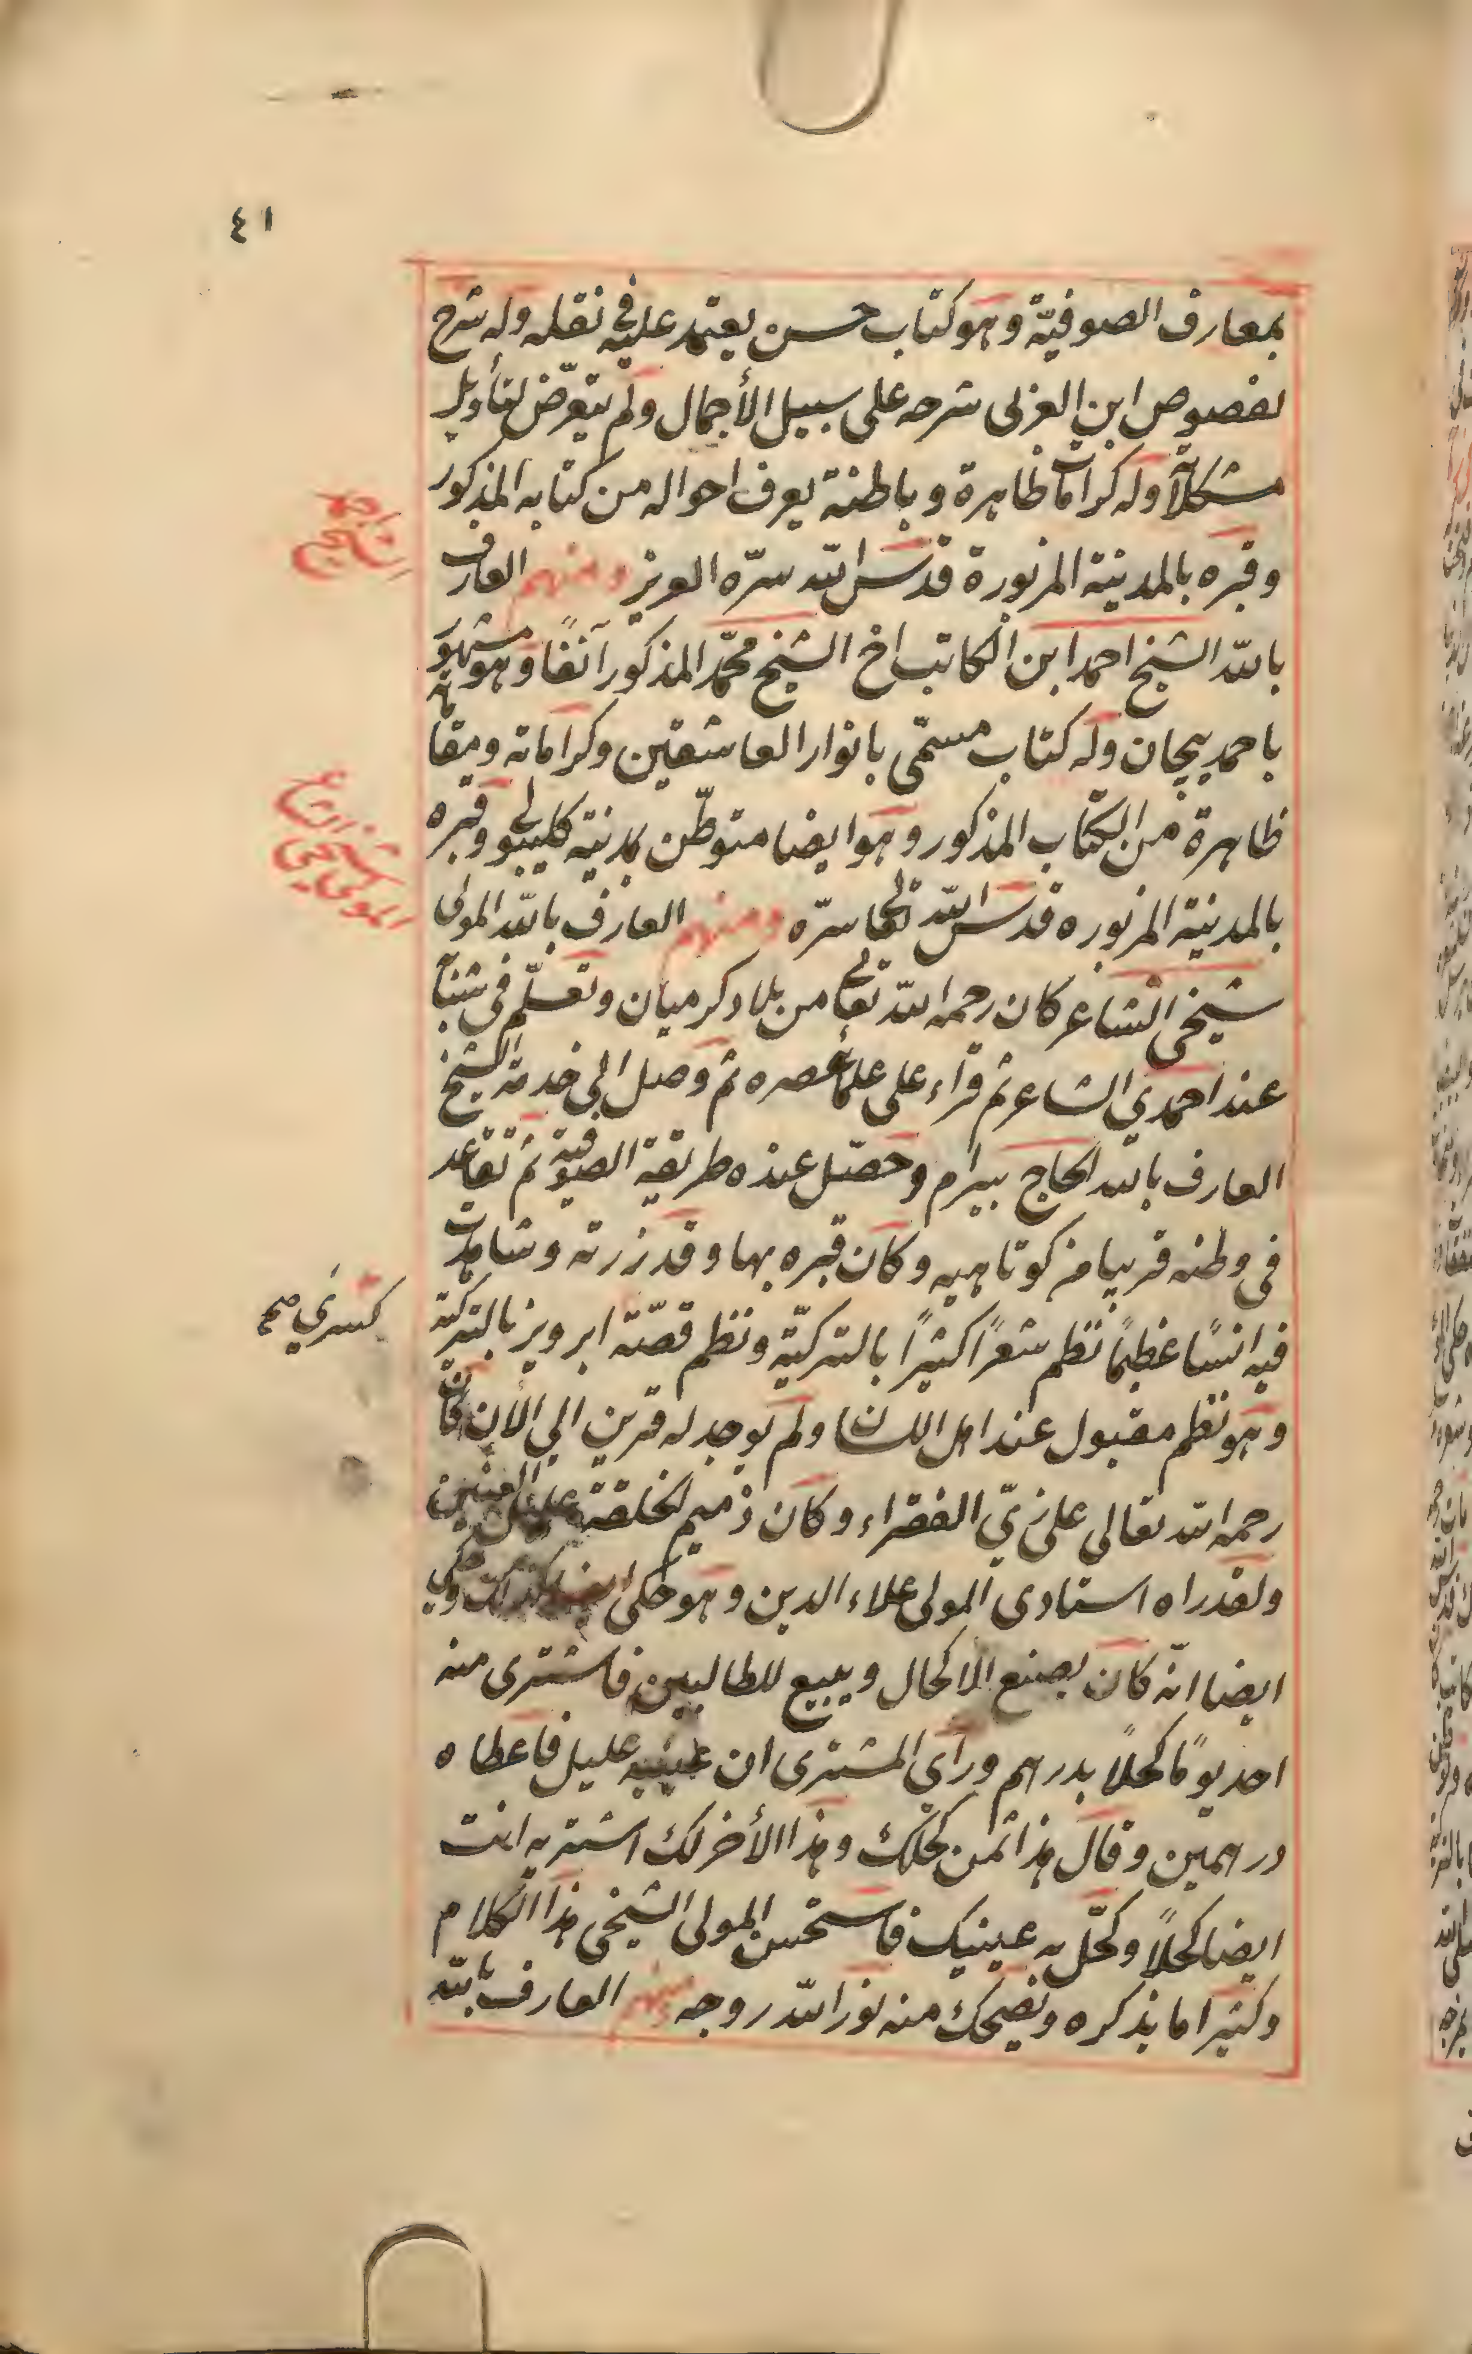 ٤١
بمعارف الصوفيّة وهو كتاب حسن يعتمد عليه في نقله وله شرح
لفصوص ابن العربى شرحه على سبيل الأجمال ولم يتعرّض لتأويل
مشكلاته وله كرامات ظاهرة وباطنة يعرف احواله من كتابه المذكور
وقبره بالمدينة المزبورة قدس الله سرّه العزيز ومنهم العارف
بالله الشيخ احمد ابن الكاتب اخ الشيخ محمّد المذكور آنفًا وهو مشهور
باحمد بيجان وله كتاب مسمّى بانوار العاشقين وكراماته ومقاماته
ظاهرة من الكتاب المذكور وهو ايضا متوطّن بمدينة كليبولى وقبره
بالمدينة المزبوره قدس الله تعالى سرّه ومنهم العارف بالله المولى
شيخى الشاعر كان رحمه الله تعالى من بلاد كرميان وتعلّم فى شبابه
عند احمدي الشاعر ثم قراء على علماء عصره ثم وصل الى خدمة الشيخ
العارف بالله الحاج بيرام وحصّل عنده طريقة الصوفية ثم تقاعد
فى وطنه قريبا من كوتاهيه وكان قبره بها وقد زرته وشاهدت
فيه انسًا عظيمًا نظم شعرًا كثيرًا بالتركيّة ونظم قصّة ابرويز بالتركية
وهو نظم مقبول عند اهل اللسان ولم يوجد له قرين الي الأن كان
رحمه الله تعالى على زيّ الفقراء وكان ذميم الخلقة عليل العينين
ولقد راه استادى المولى علاء الدين وهو حكى ايضا كذلك وحكي
ايضا انّه كان يصنع الاكحال ويبيع للطالبين فاشترى منه
احد يومًا كحلًا بدرهم ورأي المشترى ان عينيه عليل فاعطاه
درهمين وقال هذا ثمن كحلك وهذا الأخر لك اشتر به انت
ايضا كحلًا وكحّل به عينيك فاستحسن المولى الشيخى هذا الكلام
وكثيرا ما يذكره ويضحك منه نور الله روحه ومنهم العارف بالله
المولى شيخى
كسري صح